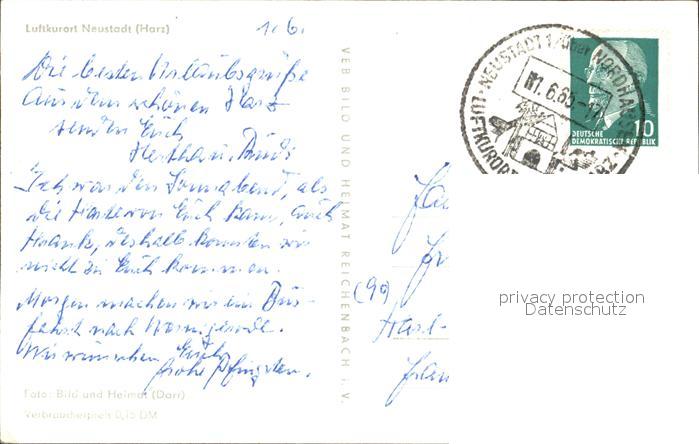 Luftkurort Neustadt (Harz)
1.6.
Die besten Urlaubsgrüße
aus dem schönen Harz
senden Euch
Hertha u.
Ich war den Sonnabend, als
die Karte von Euch kam, auch
krank, deshalb konnten wir
nicht zu Euch kommen.
Morgen machen wir ein Bus-
fahrt nach Wernigerode.
Wir wünschen Euch
frohe Pfingsten.
Foto: Bild und Heimat (Darr)
Verbraucherpreis 0,15 DM
VEB BILD UND HEIMAT REICHENBACH i. V.
LUFTKURORT · NEUSTADT über NORDHAUSEN
1.6.65-17
10
DEUTSCHE
DEMOKRATISCHE REPUBLIK
(90)
Karl-
privacy protection
Datenschutz